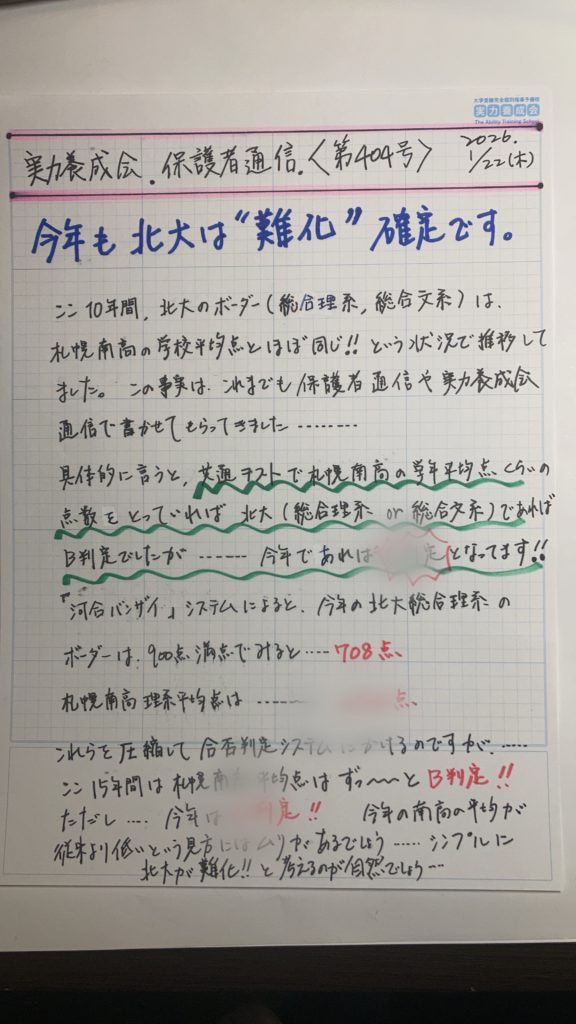 大学受験完全個別指導予備校
実力養成会
The Ability Training School
実力養成会・保護者通信.〈第404号〉
2026.
1/22(木)
今年も北大は“難化”確定です。
ここ10年間,北大のボーダー(総合理系,総合文系)は、
札幌南高の学校平均点とほぼ同じ!!という状況で推移して
ました。この事実は、これまでも保護者通信や実力養成会
通信で書かせてもらってきました………
具体的に言うと,共通テストで札幌南高の学年平均点くらいの
点数をとっていれば 北大(総合理系 or 総合文系)であれば
B判定でしたが ……… 今年であれば 定となってます!!
「河合バンザイ」システムによると、今年の北大総合理系の
ボーダーは、900点満点でみると…‥708点、
札幌南高理系平均点は ……… 点、
これらを圧縮して合否判定システムにかけるのですが、……
ここ15年間は札幌南 平均点はずっ〜〜とB判定!!
ただし…‥ 今年は 判定!! 今年の南高の平均が
従来より低いという見方にはムリがあるでしょう……シンプルに
北大が難化!!と考えるのが自然でしょう…